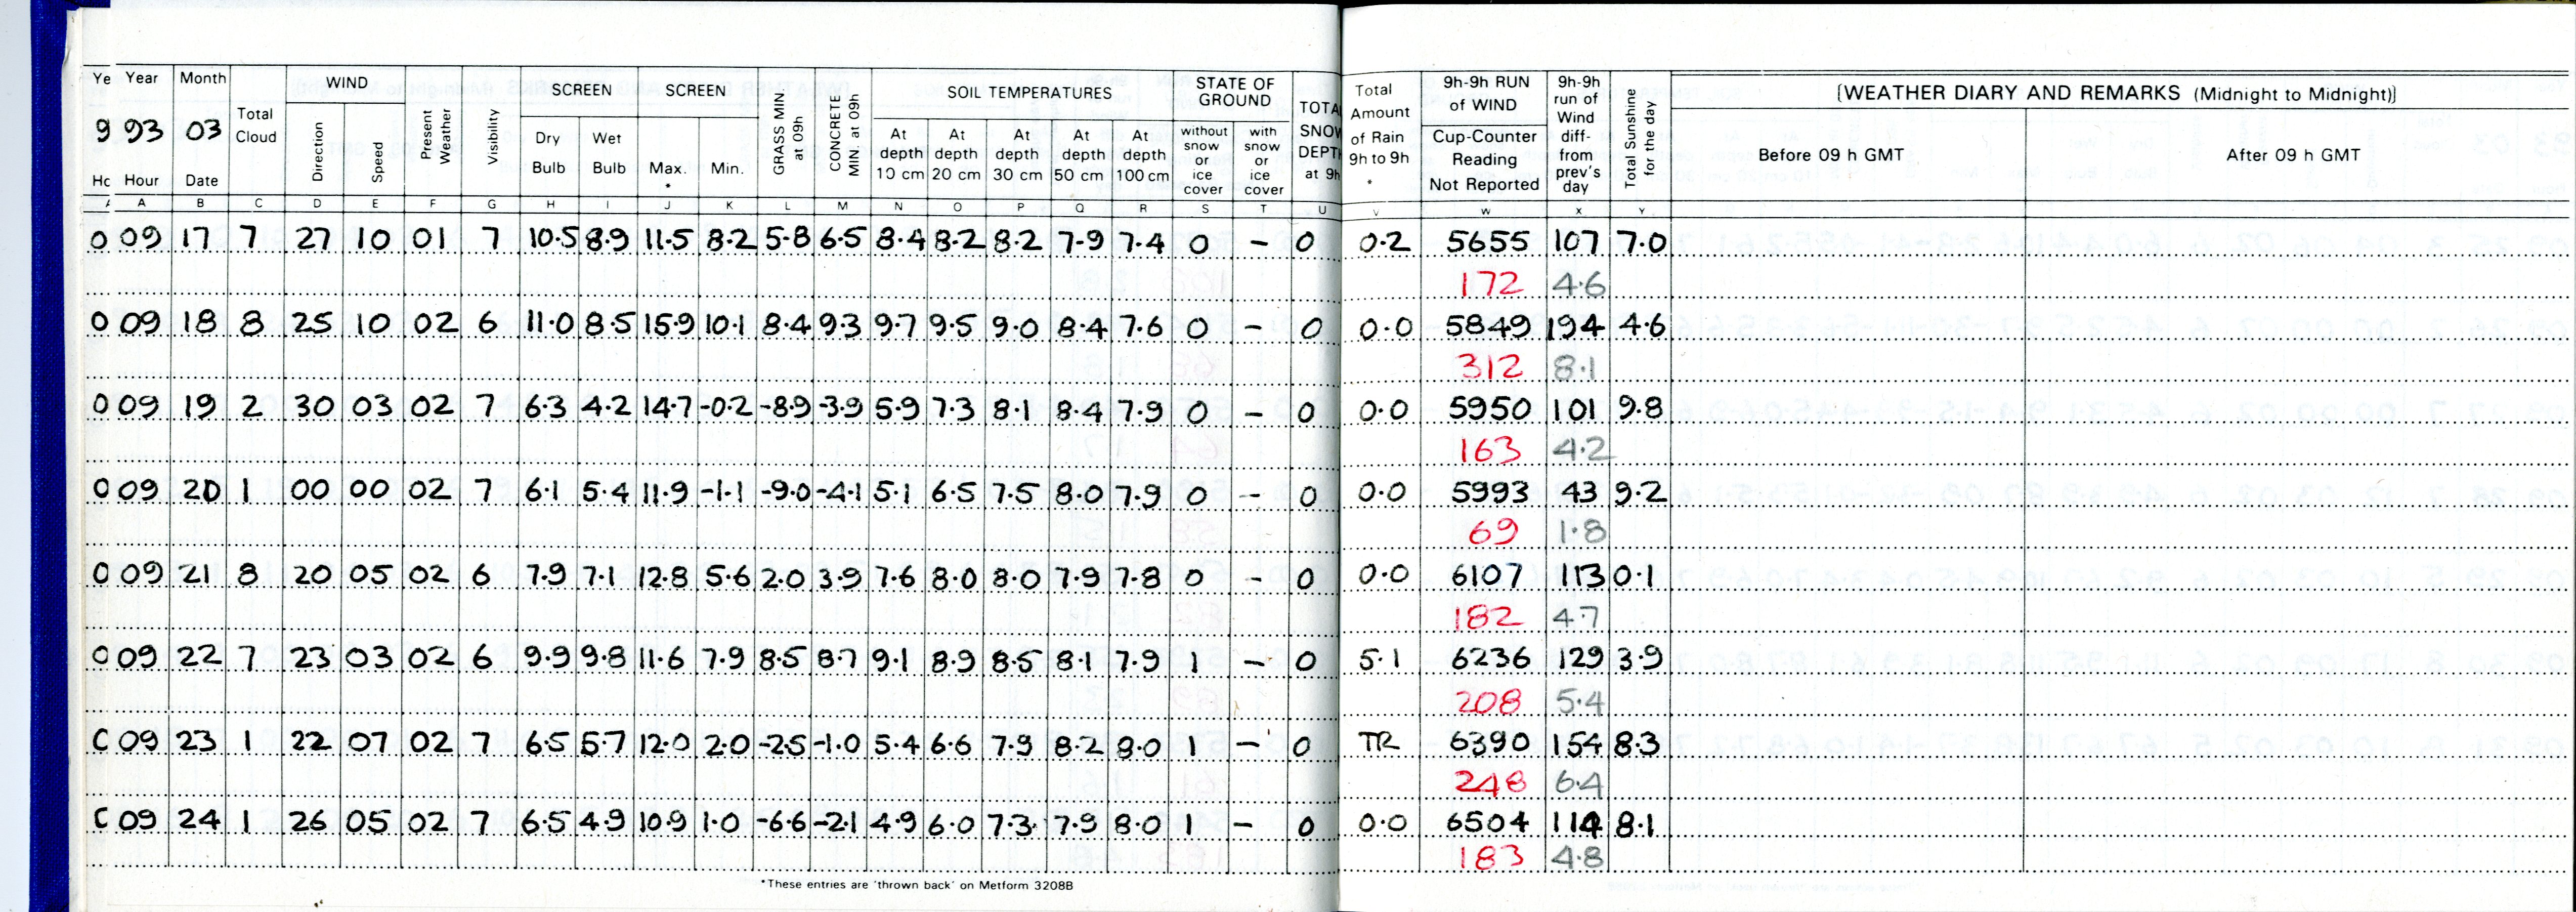 Ye Year Month WIND SCREEN SCREEN SOIL TEMPERATURES STATE OF GROUND Total 9h-9h RUN of WIND 9h-9h run of Wind diff- from prev's day Total Sunshine for the day [WEATHER DIARY AND REMARKS (Midnight to Midnight)]
9 93 03 Total Cloud Direction Speed Present Weather Visibility Dry Bulb Wet Bulb Max. * Min. GRASS MIN at 09h CONCRETE MIN at 09h At depth 10 cm At depth 20 cm At depth 30 cm At depth 50 cm At depth 100 cm without snow or ice cover with snow or ice cover TOTA SNOW DEPTH at 9h Amount of Rain 9h to 9h * Cup-Counter Reading Not Reported Before 09 h GMT After 09 h GMT
Hc Hour Date
A B C D E F G H I J K L M N O P Q R S T U V W X Y
0 09 17 7 27 10 01 7 10.5 8.9 11.5 8.2 5.8 6.5 8.4 8.2 8.2 7.9 7.4 0 - 0 0.2 5655 107 7.0
172 4.6
0 09 18 8 25 10 02 6 11.0 8.5 15.9 10.1 8.4 9.3 9.7 9.5 9.0 8.4 7.6 0 - 0 0.0 5849 194 4.6
312 8.1
0 09 19 2 30 03 02 7 6.3 4.2 14.7 -0.2 -8.9 -3.9 5.9 7.3 8.1 8.4 7.9 0 - 0 0.0 5950 101 9.8
163 4.2
0 09 20 1 00 00 02 7 6.1 5.4 11.9 -1.1 -9.0 -4.1 5.1 6.5 7.5 8.0 7.9 0 - 0 0.0 5993 43 9.2
69 1.8
0 09 21 8 20 05 02 6 7.9 7.1 12.8 5.6 2.0 3.9 7.6 8.0 8.0 7.9 7.8 0 - 0 0.0 6107 113 0.1
182 4.7
0 09 22 7 23 03 02 6 9.9 9.8 11.6 7.9 8.5 8.7 9.1 8.9 8.5 8.1 7.9 1 - 0 5.1 6236 129 3.9
208 5.4
0 09 23 1 22 07 02 7 6.5 5.7 12.0 2.0 -2.5 -1.0 5.4 6.6 7.9 8.2 8.0 1 - 0 TR 6390 154 8.3
248 6.4
0 09 24 1 26 05 02 7 6.5 4.9 10.9 1.0 -6.6 -2.1 4.9 6.0 7.3 7.9 8.0 1 - 0 0.0 6504 114 8.1
183 4.8
*These entries are 'thrown back' on Metform 3208B